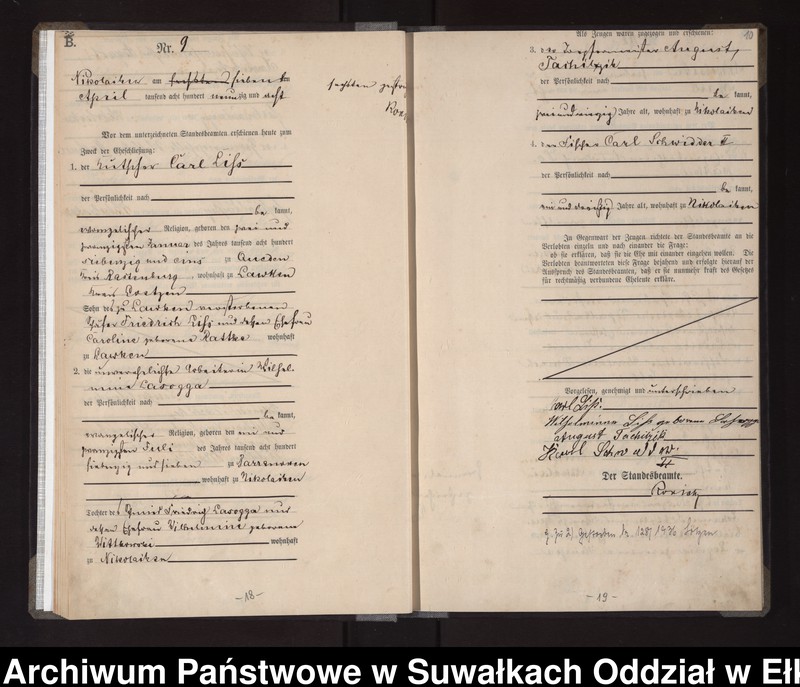 B.
Nr. 9
Nikolaiken am sechsten sieben
April tausend acht hundert neunzig und acht
sechsten
Vor dem unterzeichneten Standesbeamten erschienen heute zum
Zweck der Eheschließung:
1. der Kutscher Carl Liss
der Persönlichkeit nach
be kannt,
evangelischer Religion, geboren den zwei und
zwanzigsten Januar des Jahres tausend acht hundert
siebenzig und eins zu
Kreis Rastenburg, wohnhaft zu Lawken
Kreis Loetzen
Sohn des zu Lawken verstorbenen
Friedrich Liss und dessen Ehefrau
Caroline geborene Rattka wohnhaft
zu Lawken
2. die unverehelichte Arbeiterin Wilhel-
mine Lasogga
der Persönlichkeit nach
be kannt,
evangelischer Religion, geboren den ein und
zwanzigsten Juli des Jahres tausend acht hundert
siebenzig und sieben zu
wohnhaft zu Nikolaiken
Tochter des Friedrich Lasogga und
dessen Ehefrau Wilhelmine geborene
Wittkowski wohnhaft
zu Nikolaiken
-18-
10
Als Zeugen waren zugezogen und erschienen:
3. der Töpfermeister August
der Persönlichkeit nach
be kannt,
Jahre alt, wohnhaft zu Nikolaiken
4. der Fischer Carl Schwidder II
der Persönlichkeit nach
be kannt,
ein und dreißig Jahre alt, wohnhaft zu Nikolaiken
In Gegenwart der Zeugen richtete der Standesbeamte an die
Verlobten einzeln und nach einander die Frage:
ob sie erklären, daß sie die Ehe mit einander eingehen wollen. Die
Verlobten beantworteten diese Frage bejahend und erfolgte hierauf der
Ausspruch des Standesbeamten, daß er sie nunmehr kraft des Gesetzes
für rechtmäßig verbundene Eheleute erkläre.
Vorgelesen, genehmigt und unterschrieben
Karl Liss.
Wilhelminna Liss geborene
August
Karl
II
Der Standesbeamte.
-19-
Archiwum Państwowe w Suwałkach Oddział w Ełk